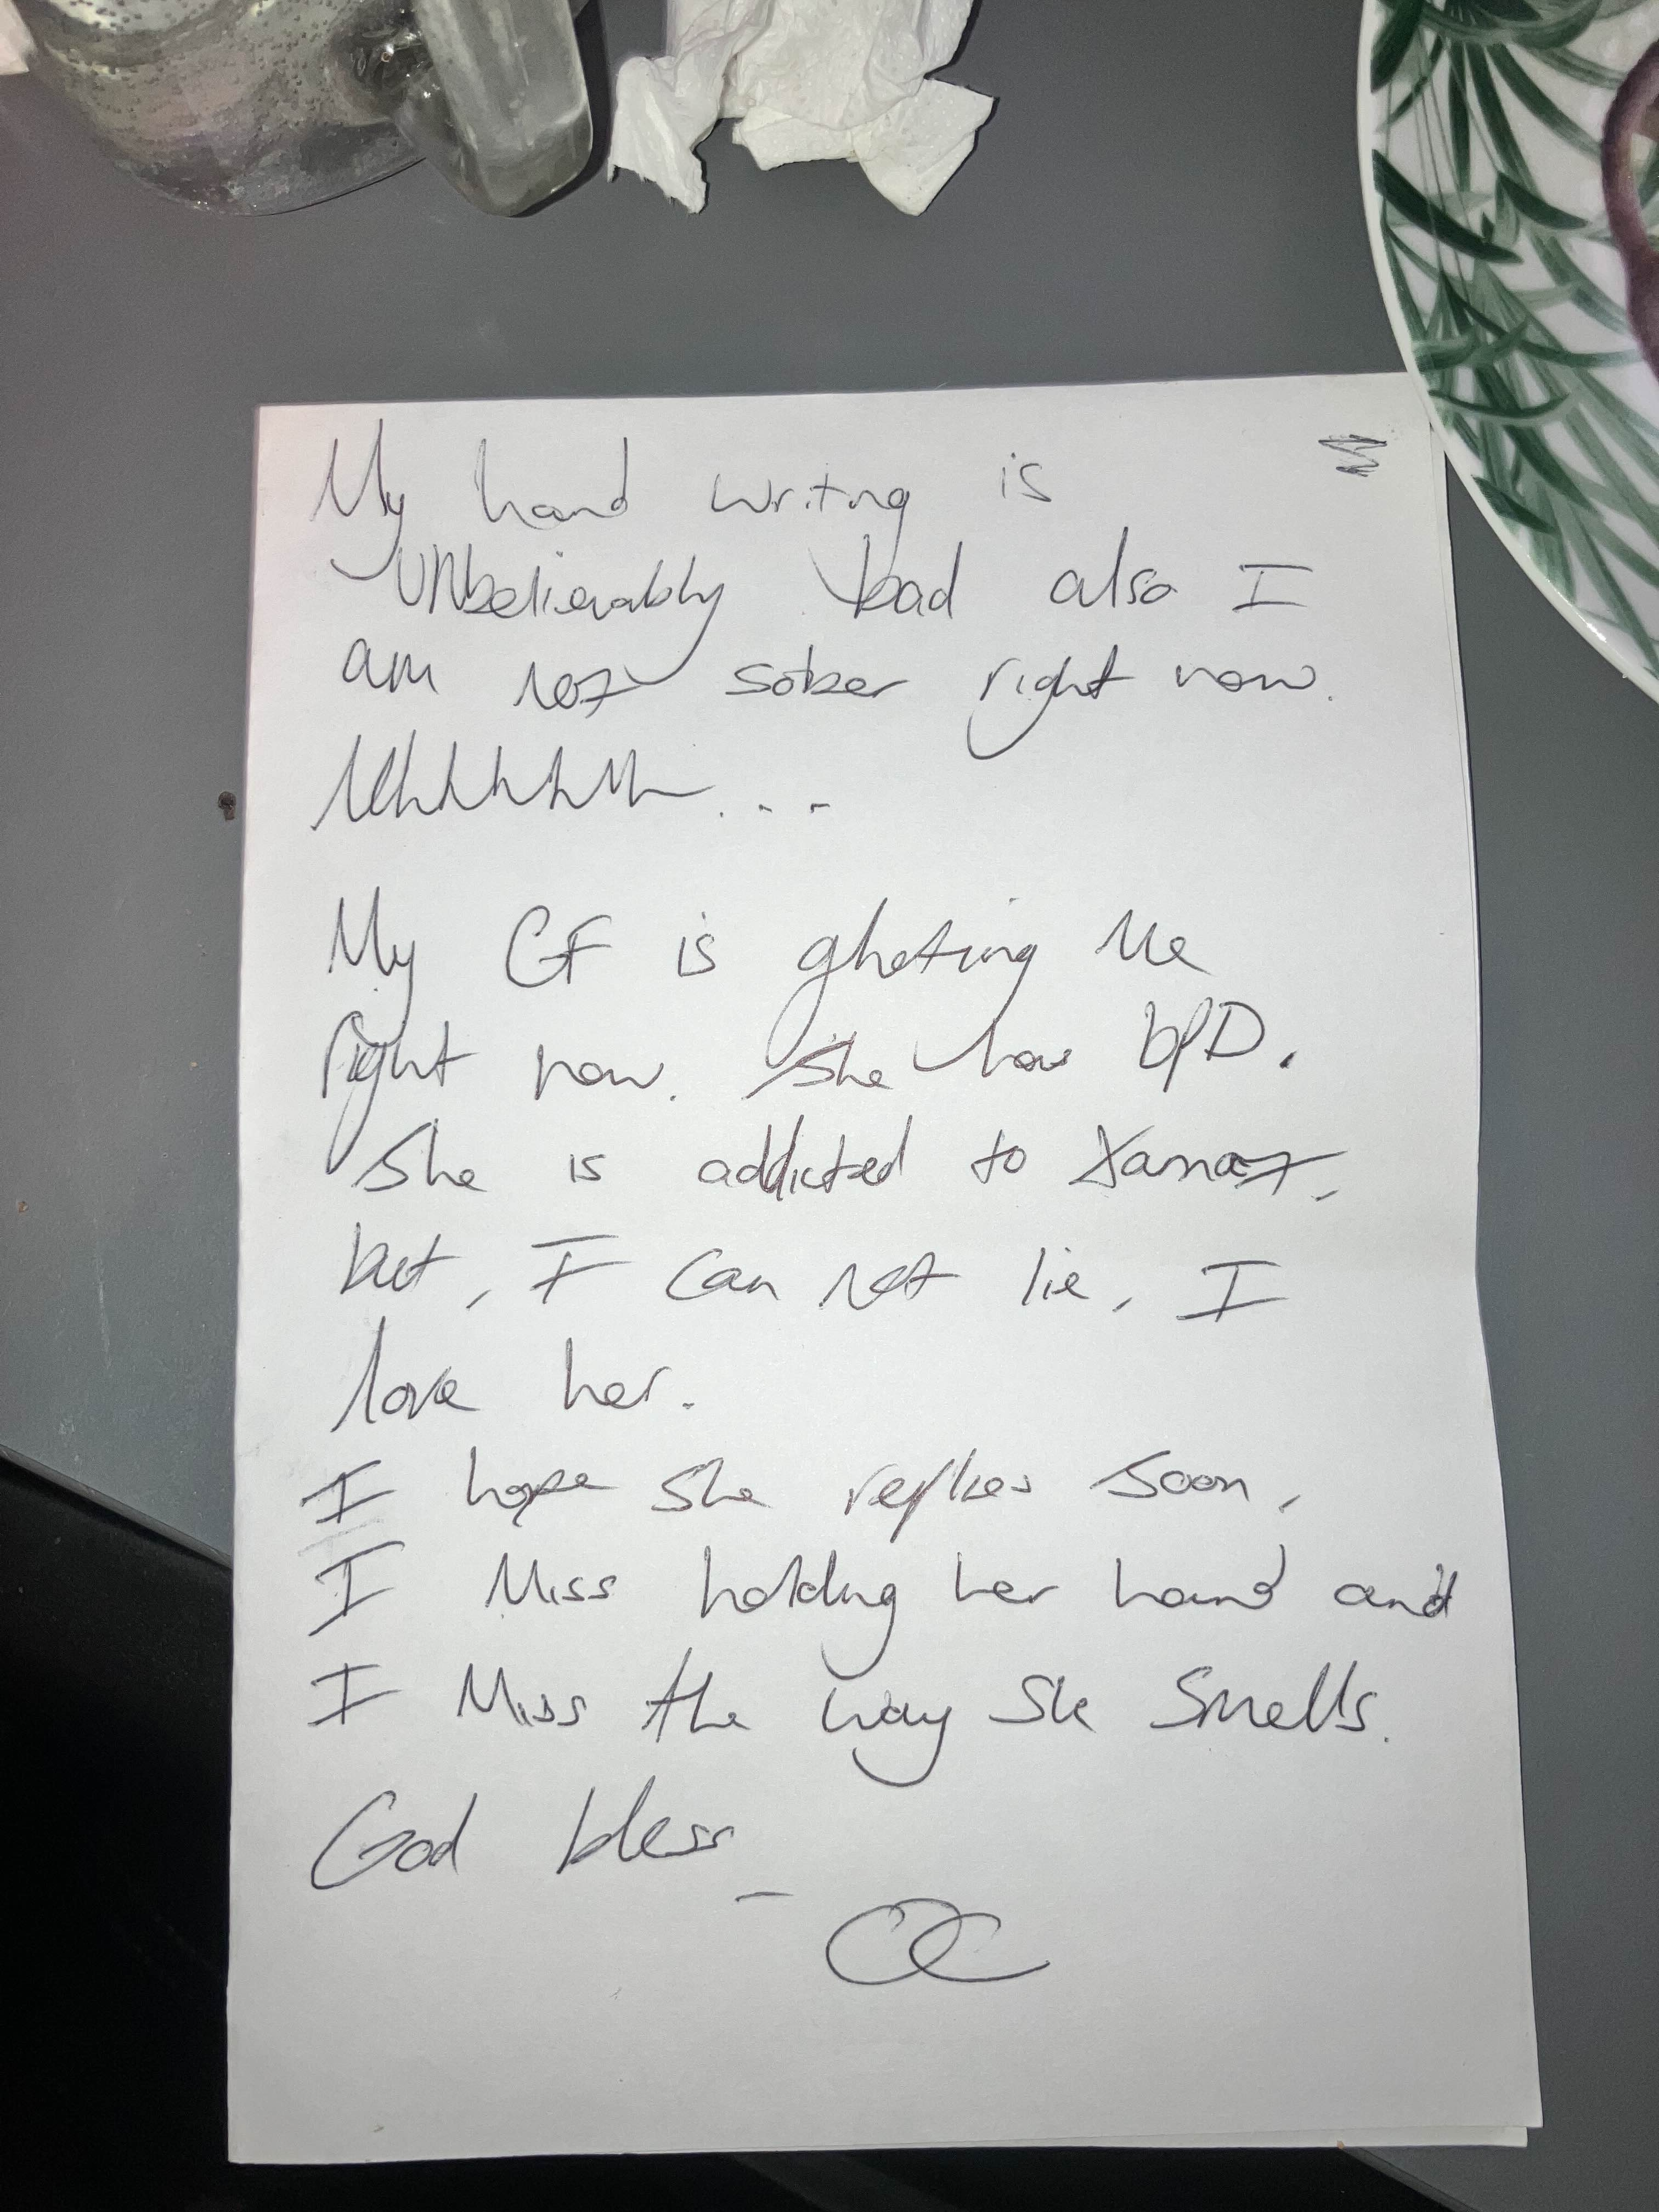 My hand writing is
unbelievably bad also I
am not sober right now.
Uhhhhhh...
My GF is ghoting me
right now. She has BPD.
She is addicted to Xanax,
but, I can not lie, I
love her.
I hope she replies soon,
I miss holding her hand and
I miss the way she smells.
God bless
- OC